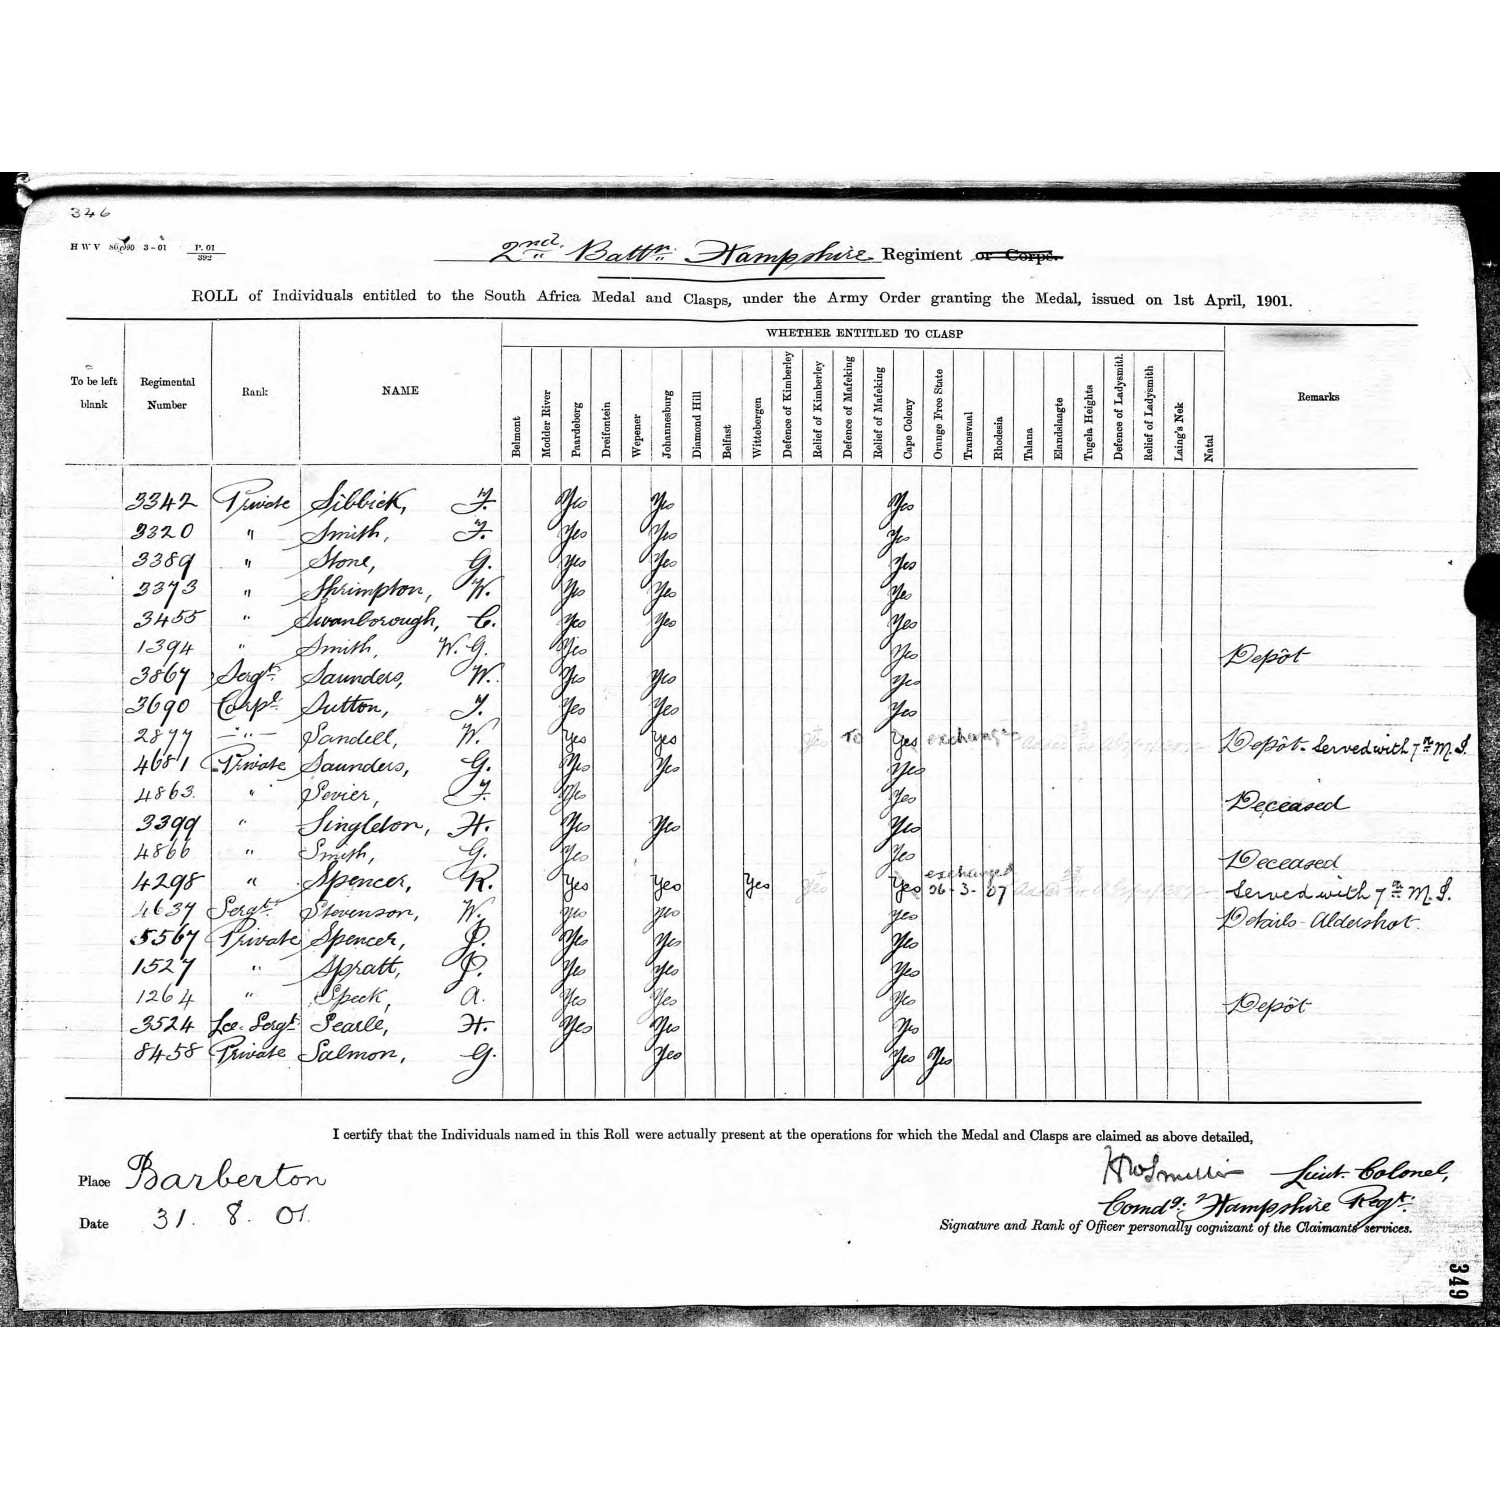 346
H W V 3–01 P. 01
392
2nd. Battn. Hampshire Regiment or Corps.
ROLL of Individuals entitled to the South Africa Medal and Clasps, under the Army Order granting the Medal, issued on 1st April, 1901.
WHETHER ENTITLED TO CLASP
To be left blank Regimental Number Rank NAME Belmont Modder River Paardeberg Dreifontein Wepener Johannesburg Diamond Hill Belfast Wittebergen Defence of Kimberley Relief of Kimberley Defence of Mafeking Relief of Mafeking Cape Colony Orange Free State Transvaal Rhodesia Talana Elandslaagte Tugela Heights Defence of Ladysmith. Relief of Ladysmith Laing's Nek Natal Remarks
3342 Private Sibbick, F. Yes Yes Yes
3320 " Smith, F. Yes Yes Yes
3389 " Stone, G. Yes Yes Yes
3373 " Shrimpton, W. Yes Yes Yes
3455 " Swanborough, C. Yes Yes Yes
1394 " Smith, W. G. Yes Yes Depôt
3867 Sergt. Saunders, W. Yes Yes Yes
3690 Corpl. Sutton, F. Yes Yes Yes
2877 — " — Sandell, W. Yes Yes Yes To Yes exchange Depôt - Served with 7th M. I.
4681 Private Saunders, G. Yes Yes Yes
4863. " Sevier, F. Yes Yes Deceased
3399 " Singleton, H. Yes Yes Yes
4866 " Smith, G. Yes Yes Deceased
4298 " Spencer, R. Yes Yes Yes Yes Yes exchanged 26-3-07 Served with 7th M. I.
4637 Sergt. Stevenson, W. Yes Yes Yes Details - Aldershot.
5567 Private Spencer, P. Yes Yes Yes
1527 " Spratt, P. Yes Yes Yes
1264 " Speck, A. Yes Yes Yes Depôt
3524 Lce. Sergt. Searle, H. Yes Yes Yes
8458 Private Salmon, G. Yes Yes Yes
I certify that the Individuals named in this Roll were actually present at the operations for which the Medal and Clasps are claimed as above detailed,
Place Barberton
Lieut. Colonel,
Date 31. 8. 01.
Comdg. 2 Hampshire Regt.
Signature and Rank of Officer personally cognizant of the Claimants services.
349